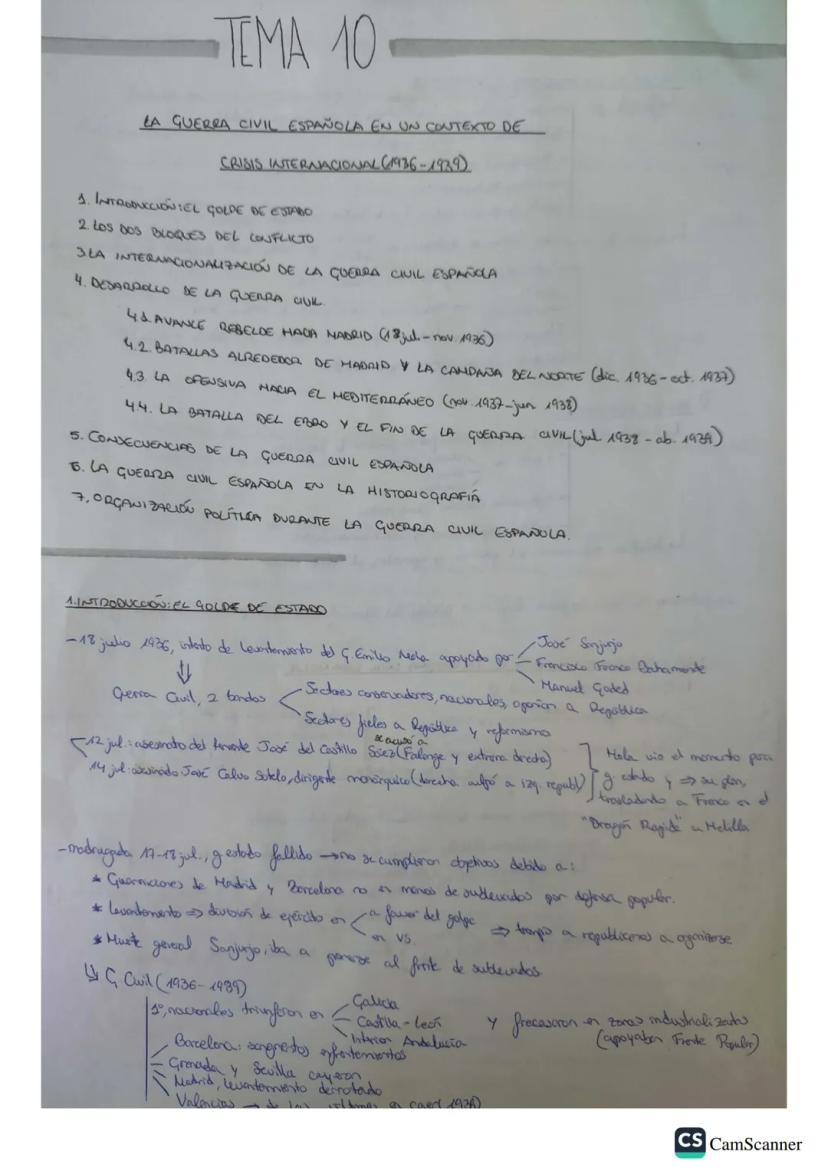 TEMA 10
LA GUERRA CIVIL ESPAÑOLA EN UN CONTEXTO DE
CRISIS INTERNACIONAL (1936-1939)
1. INTRODUCCIÓN: EL GOLPE DE ESTADO
2. LOS DOS BLOQUES DEL CONFLICTO
3. LA INTERNACIONALIZACIÓN DE LA GUERRA CIVIL ESPAÑOLA
4. DESARROLLO DE LA GUERRA CIVIL
4.1. AVANCE REBELDE HACIA MADRID (18 jul. - nov. 1936)
4.2. BATALLAS ALREDEDOR DE MADRID Y LA CAMPAÑA DEL NORTE (dic. 1936 - oct. 1937)
4.3. LA OFENSIVA HACIA EL MEDITERRÁNEO (nov. 1937 - jun 1938)
4.4. LA BATALLA DEL EBRO Y EL FIN DE LA GUERRA CIVIL (jul 1938 - ab. 1939)
5. CONSECUENCIAS DE LA GUERRA CIVIL ESPAÑOLA
6. LA GUERRA CIVIL ESPAÑOLA EN LA HISTORIOGRAFÍA
7. ORGANIZACIÓN POLÍTICA DURANTE LA GUERRA CIVIL ESPAÑOLA.
1. INTRODUCCIÓN: EL GOLPE DE ESTADO
- 18 julio 1936, intento de levantamiento del G Emilio Mola apoyado por
José Sanjurjo
Francisco Franco Bahamonde
Manuel Goded
⇓
Guerra Civil, 2 bandos
Sectores conservadores, nacionales, oponían a República
Sectores fieles a República y reformismo
12 jul.: asesinato del teniente José del Castillo Sáez (se acusó a Falange y extrema derecha)
14 jul: asesinado José Calvo Sotelo, dirigente monárquico (derecha culpó a izq. republ)
Mola vio el momento para
g. estado y ⇒ su plan,
trasladando a Franco en el
"Dragón Rapide" a Melilla
- madrugada 17-18 jul., g estado fallido → no se cumplieron objetivos debido a:
* Guarniciones de Madrid y Barcelona no en manos de sublevados por defensa popular.
* Levantamiento ⇒ división de ejército en
a favor del golpe
en vs.
⇒ tiempo a republicanos a organizarse
* Muerte general Sanjurjo, iba a ponerse al frente de sublevados
↳ G Civil (1936-1939)
1º, nacionales triunfaron en
Galicia
Castilla-León
Interior Andalucía
y fracasaron en zonas industrializadas
(apoyaban Frente Popular)
Barcelona: sangrientos enfrentamientos
Granada y Sevilla cayeron
Madrid, levantamiento derrotado
Valencias → de las últimas en caer (1939)
CS CamScanner